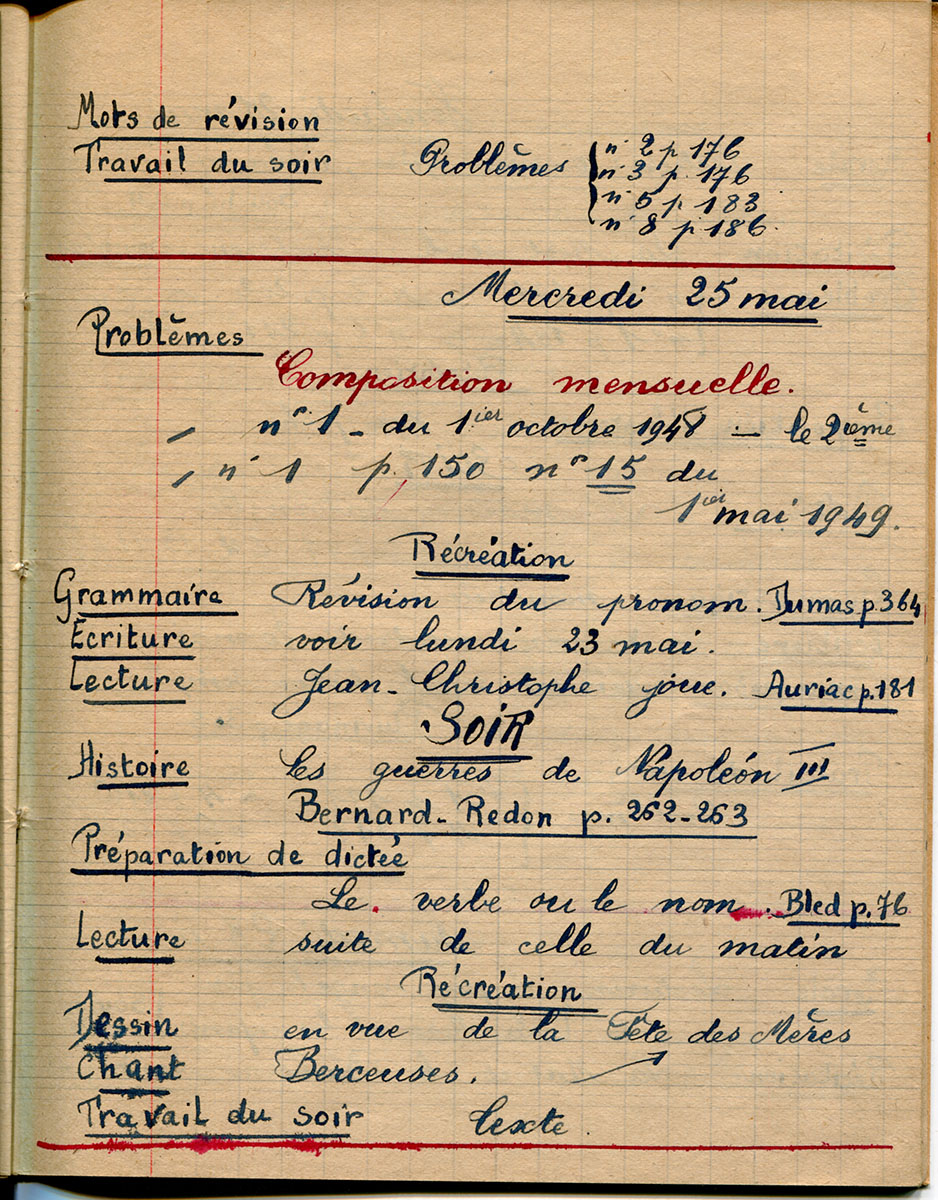 Mots de révision
Travail du soir Problèmes n° 2 p 176
n° 3 p. 176
n° 5 p 183
n° 8 p 186.
Mercredi 25 mai
Problèmes
Composition mensuelle.
n° 1 - du 1ier octobre 1948 - le 2ième
n° 1 p. 150 n° 15 du
1ier mai 1949.
Récréation
Grammaire Révision du pronom. Dumas p. 364
Ecriture voir lundi 23 mai.
Lecture Jean-Christophe joue. Auriac p. 181
SOIR
Histoire Les guerres de Napoléon III
Bernard-Redon p. 262-263
Préparation de dictée
Le verbe ou le nom. Bled p. 76
Lecture suite de celle du matin
Récréation
Dessin en vue de la Fête des Mères
Chant Berceuses.
Travail du soir texte.